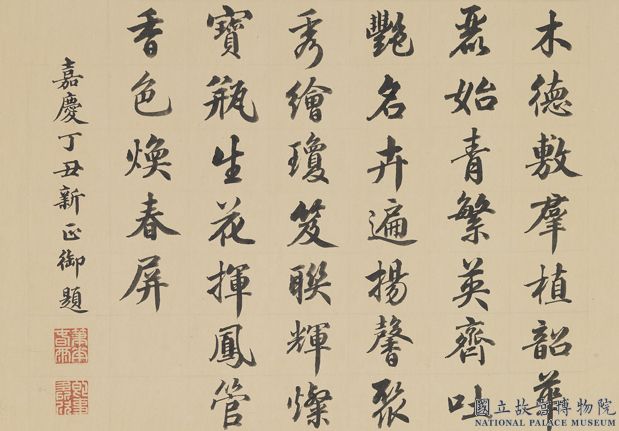 木德敷羣植韶華
麗始青繁英齊吐
艷名卉遍揚馨聚
秀繪瓊笈聯輝燦
寶瓶生花揮鳳管
香色煥春屏
嘉慶丁丑新正御題
國立故宮博物院
NATIONAL PALACE MUSEUM